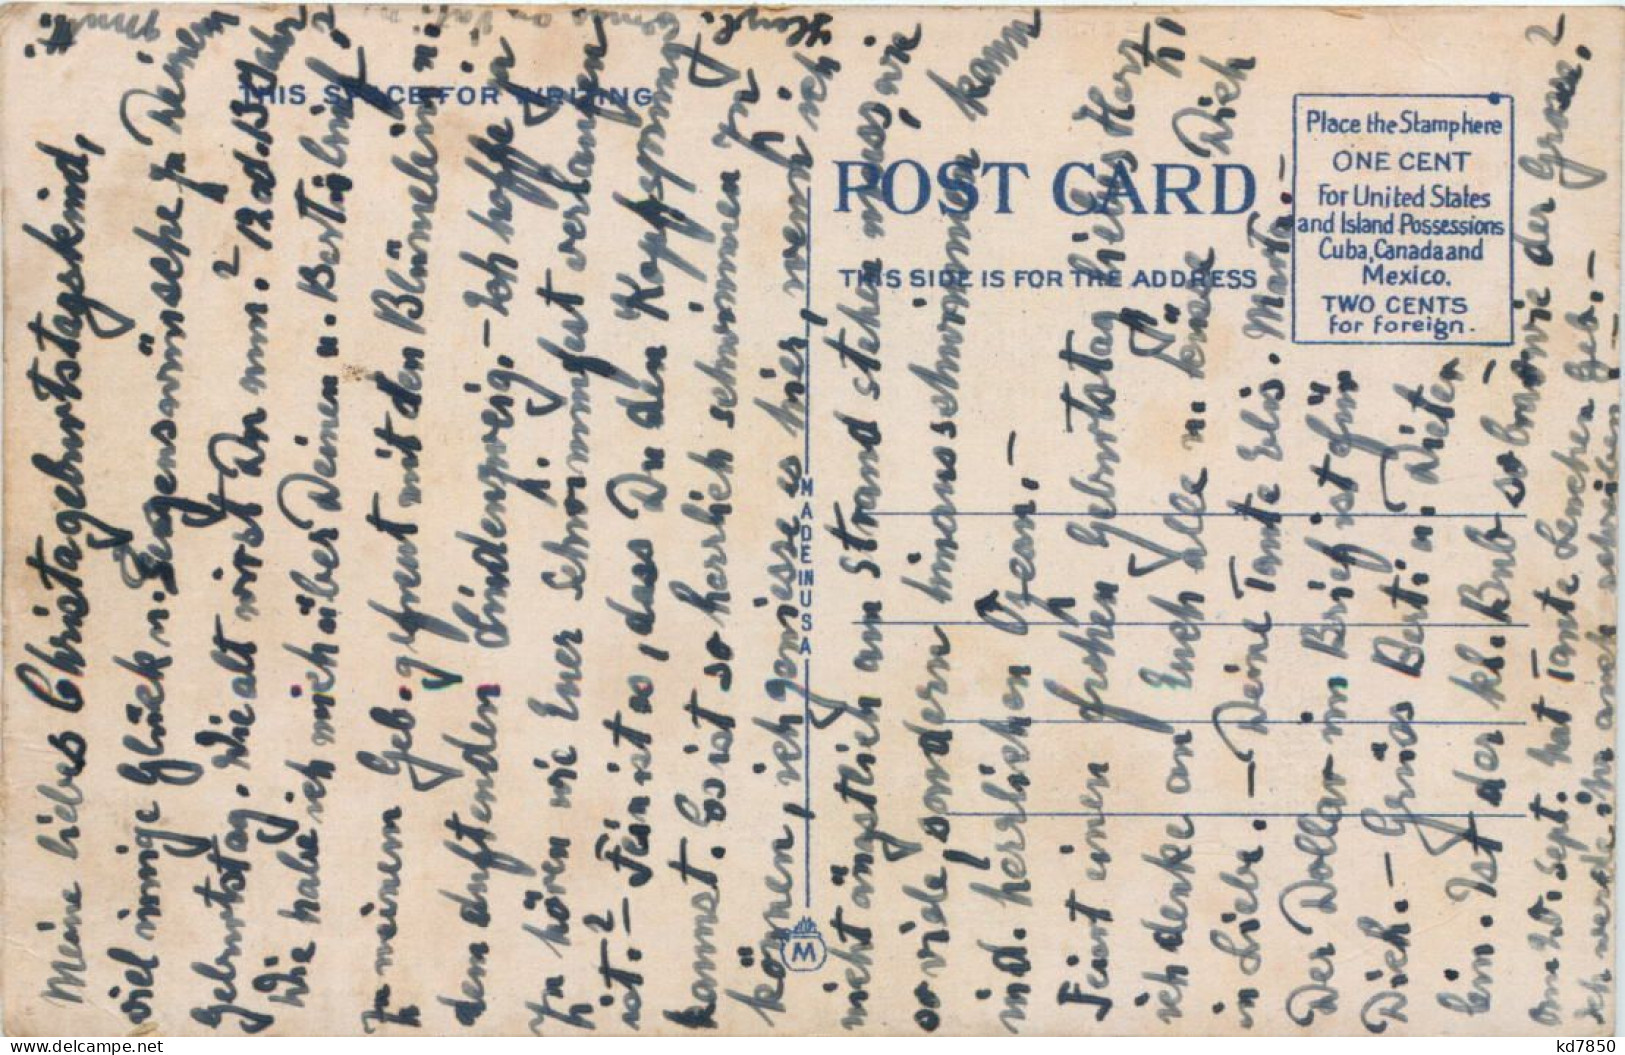 Meine liebes Christageburtstagskind,
viel innige Glück u. Segenswünsche zu Deinem
Geburtstag. Wie alt wirst Du nun? 12 od. 13 Jahr?
Wie habe ich mich über Deinen u. Bertis brief
zu meinem Geb. gefreut mit den Blümelein u.
dem duftenden Lindenzweig. - Ich hoffe zu
zu hören wie Euer Schwimmfest verlaufen
ist? - Fein ist es, dass Du den Kopfsprung
kannst. Es ist so herrlich schwimmen zu
können, ich geniesse es hier, wenn ich
nicht ängstlich am Strand stehen muss, wie
so viele, sondern hinausschwimmen kann
ind. herrlichen Ozean. -
Feiert einen frohen Geburtstag liebes Herz,
ich denke an Euch alle u. küsse Dich
in Liebe. - Deine Tante Elis. Marta. -
Der Dollar im Brief ist für
Dich. - Grüss Berti u. Dieter
ein. Ist der kl. Bub so brav wie der Grosse?
Am 21. Sept. hat Tante Lenchen Geb. -
Ich werde ihr auch schreiben. -
THIS SPACE FOR WRITING
POST CARD
THIS SIDE IS FOR THE ADDRESS
Place the Stamp here
ONE CENT
For United States
and Island Possessions
Cuba, Canada and
Mexico.
TWO CENTS
for foreign.
MADE IN USA
M
delcampe.net
kd7850